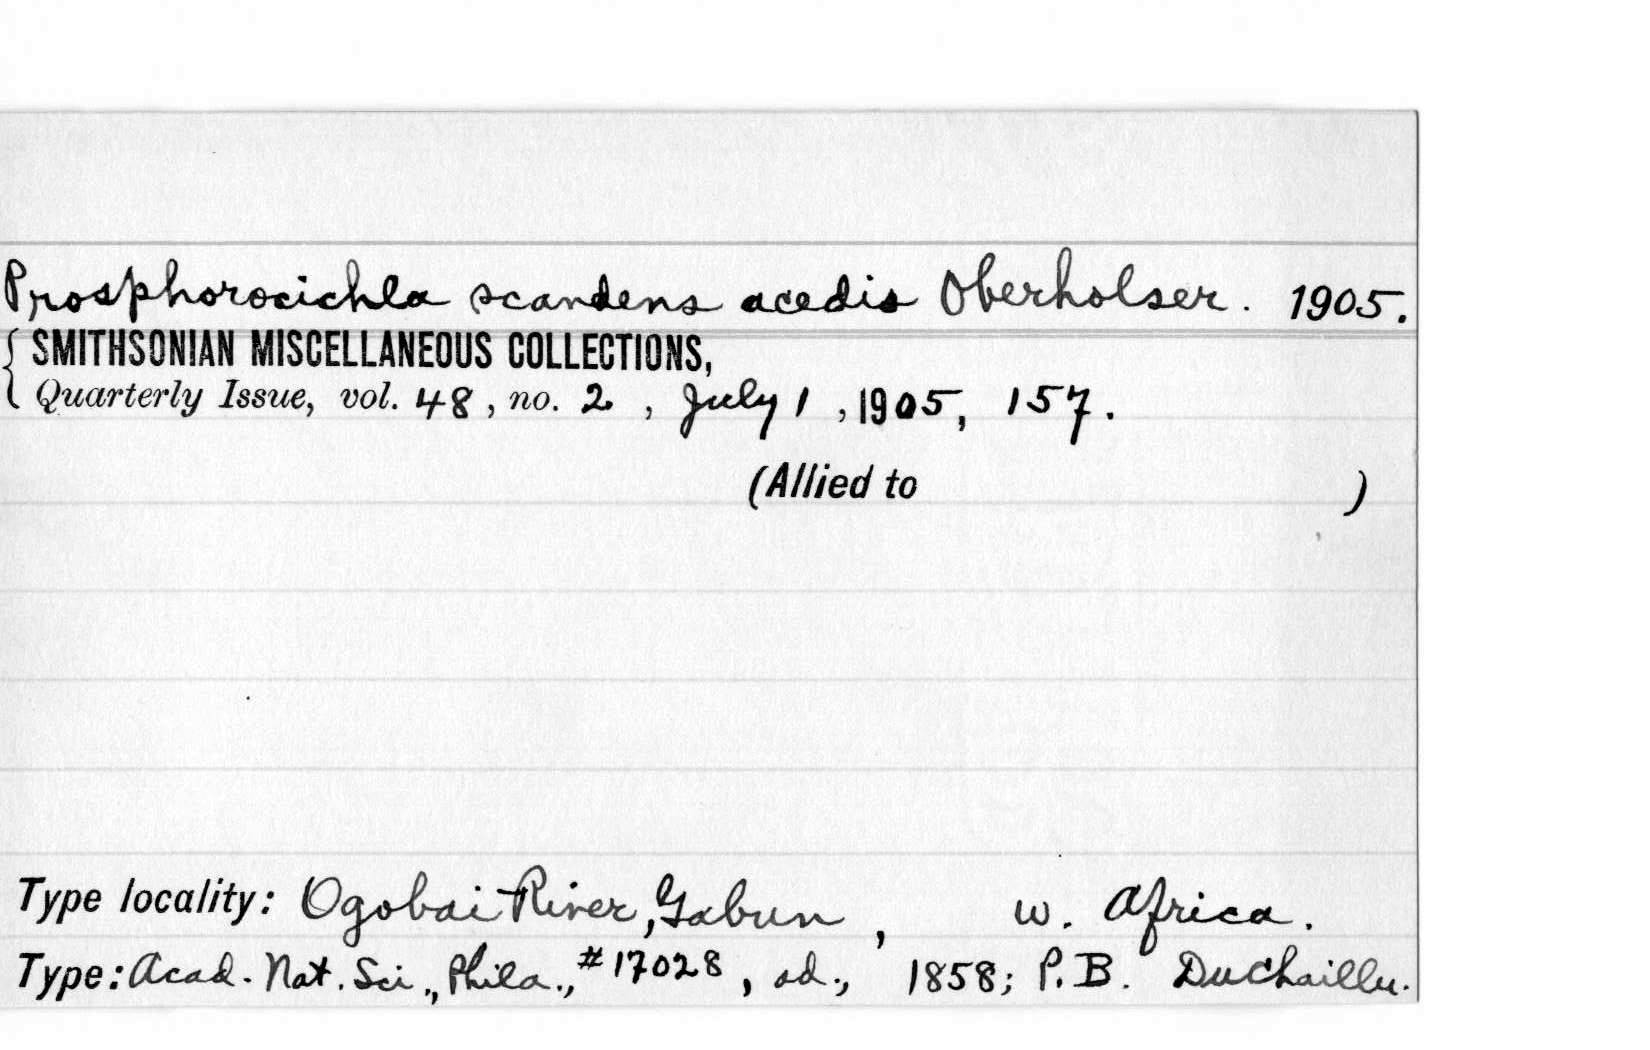 Prosphorocichla scandens acedis Oberholser. 1905.
{ SMITHSONIAN MISCELLANEOUS COLLECTIONS,
Quarterly Issue, vol. 48, no. 2, July 1, 1905, 157.
(Allied to )
Type locality: Ogobai River, Gabun, w. Africa.
Type: Acad. Nat. Sci., Phila., #17028, ad., 1858; P. B. DuChaillu.